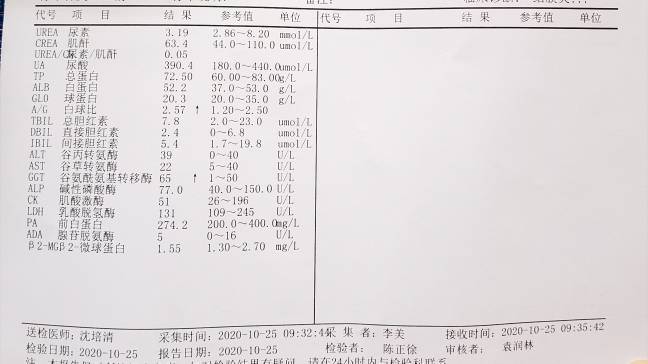 代号 项 目 结 果 参考值 单位 代号 项 目 结 果 参考值 单位
UREA 尿素 3.19 2.86~8.20 mmol/L
CREA 肌酐 63.4 44.0~110.0 umol/L
UREA/C尿素/肌酐 0.05
UA 尿酸 390.4 180.0~440.0umol/L
TP 总蛋白 72.50 60.00~83.00g/L
ALB 白蛋白 52.2 37.0~53.0 g/L
GLO 球蛋白 20.3 20.0~35.0 g/L
A/G 白球比 2.57 ↑ 1.20~2.50
TBIL 总胆红素 7.8 2.0~23.0 umol/L
DBIL 直接胆红素 2.4 0~6.8 umol/L
IBIL 间接胆红素 5.4 1.7~19.8 umol/L
ALT 谷丙转氨酶 39 0~40 U/L
AST 谷草转氨酶 22 5~40 U/L
GGT 谷氨酰氨基转移酶 65 ↑ 1~50 U/L
ALP 碱性磷酸酶 77.0 40.0~150.0 U/L
CK 肌酸激酶 51 26~196 U/L
LDH 乳酸脱氢酶 131 109~245 U/L
PA 前白蛋白 274.2 200.0~400.0mg/L
ADA 腺苷脱氨酶 5 0~16 U/L
β2-MGβ2-微球蛋白 1.55 1.30~2.70 mg/L
送检医师：沈培清 采集时间：2020-10-25 09:32:44采 集 者：李美 接收时间：2020-10-25 09:35:42
检验日期：2020-10-25 报告日期：2020-10-25 检验者： 陈正徐 审核者： 袁润林